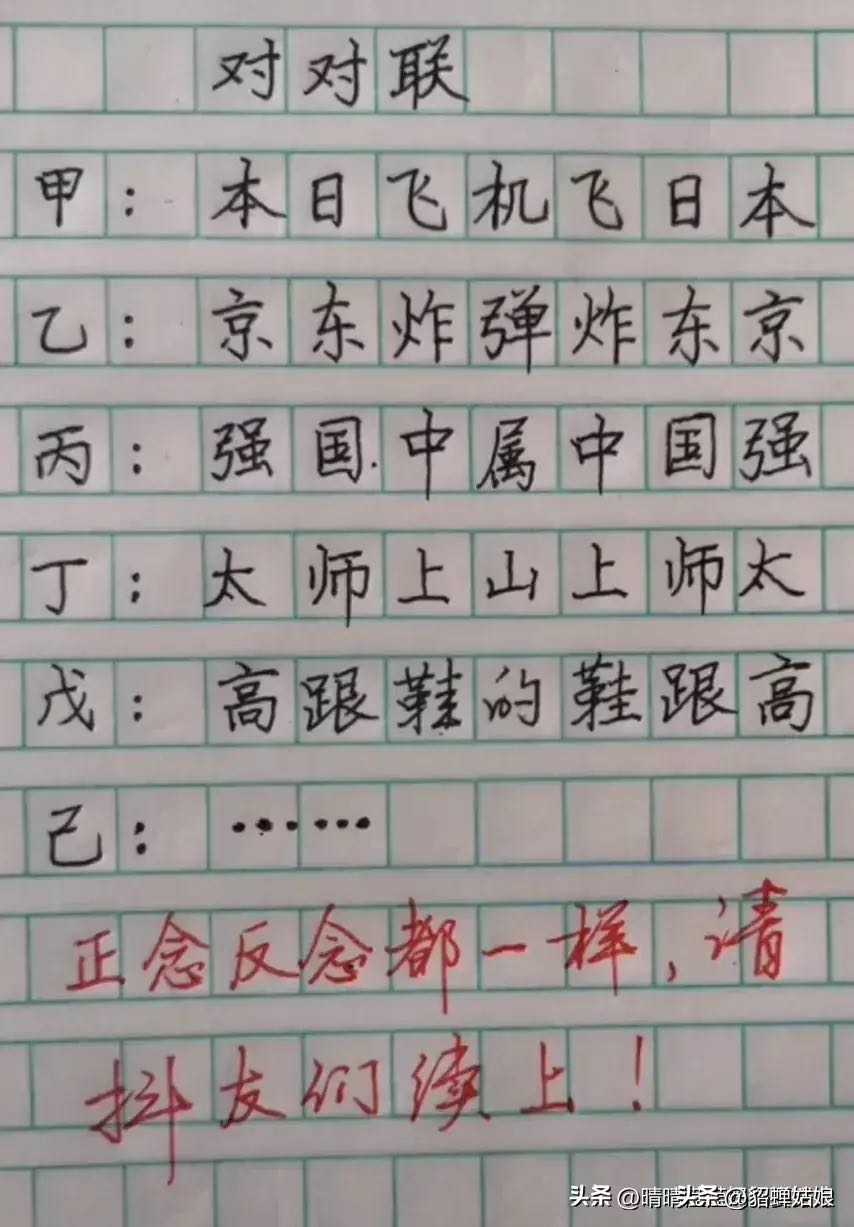 对对联
甲：本日飞机飞日本
乙：京东炸弹炸东京
丙：强国中属中国强
丁：太师上山上师太
戊：高跟鞋的鞋跟高
己：……
正念反念都一样，请
抖友们续上！
头条 @晴晴
头条 @貂蝉姑娘